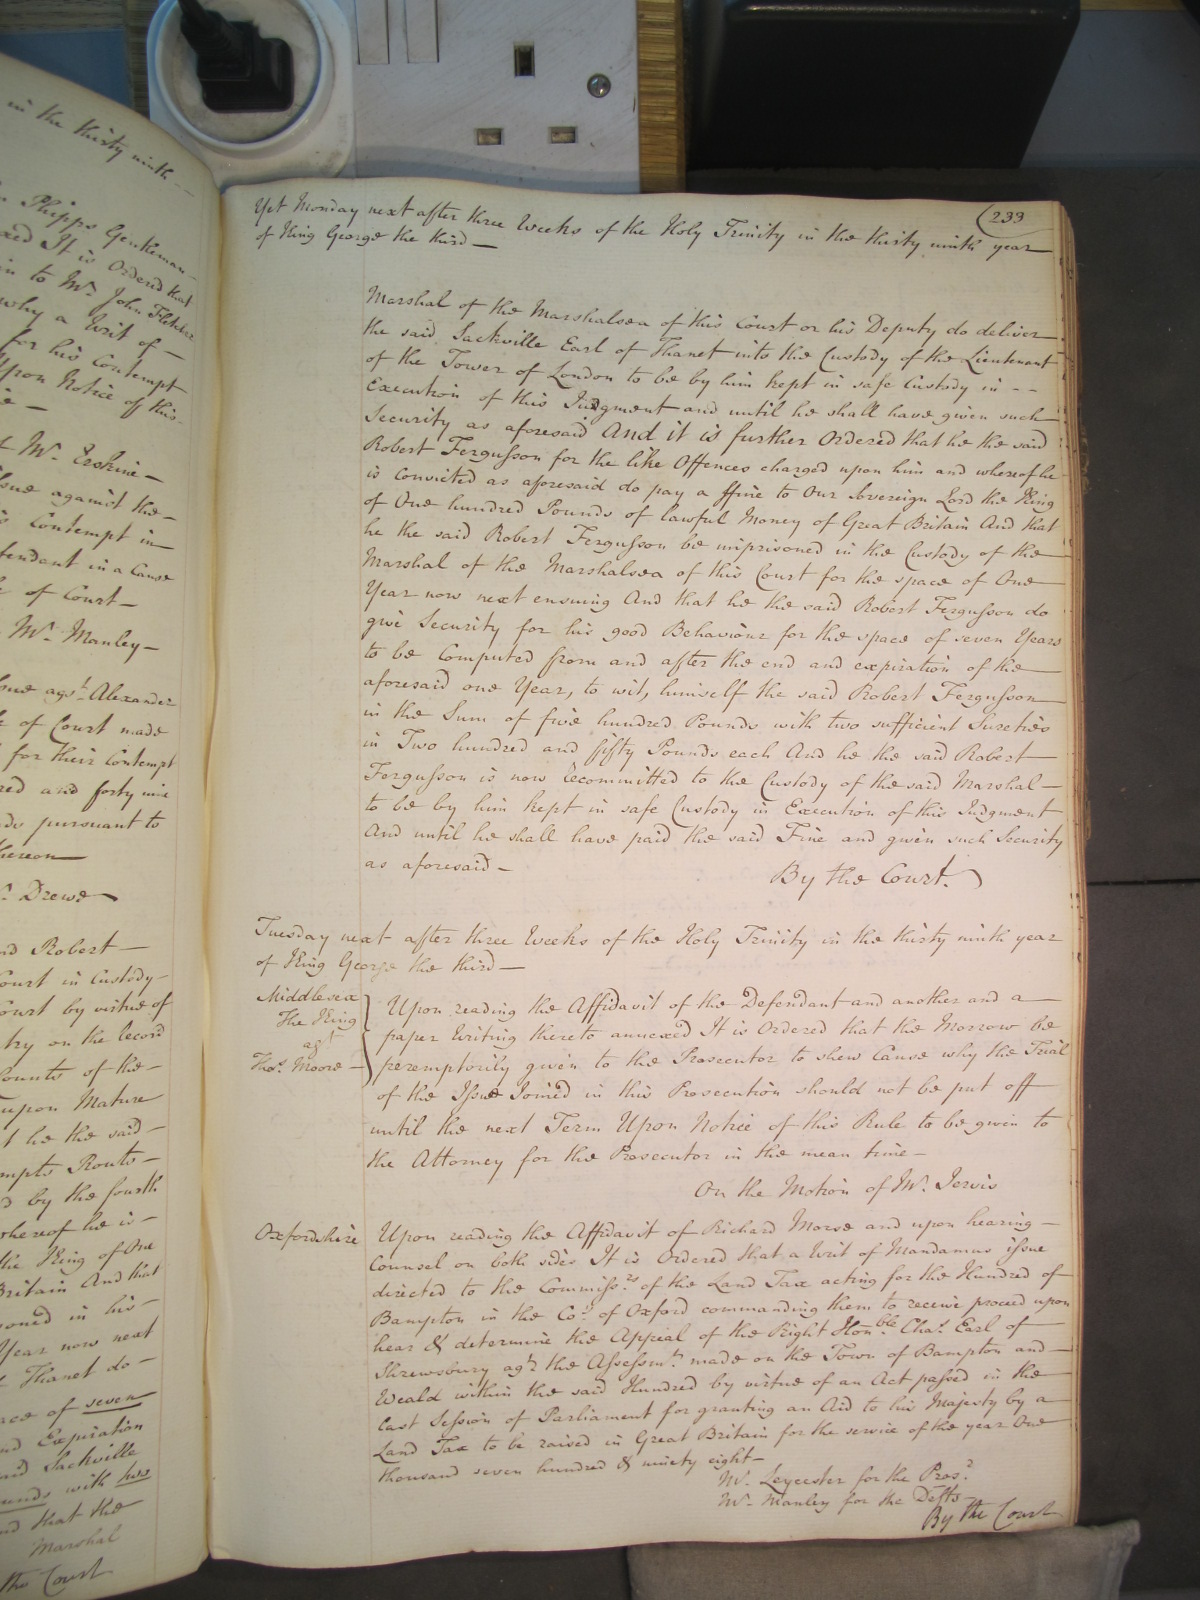 in the thirty ninth
Phipps Gentleman
It is Ordered that
in to Mr. John Fletcher
why a Writ of
for his Contempt
Upon Notice of this
Mr. Erskine
issue against the
Contempt in
Defendant in a Cause
of Court
Mr. Manley
Issue agst. Alexander
of Court made
for their Contempt
and forty nine
pursuant to
thereon
Drewe
and Robert
Court in Custody
Court by virtue of
try on the Record
Counts of the
upon Mature
he the said
Routs
by the fourth
whereof he is
the King of One
Britain And that
in his
Year now next
Thanet do
space of seven
and Expiration
said Sackville
Pounds with two
and that the
Marshal
the Court
233
Yet Monday next after three Weeks of the Holy Trinity in the thirty ninth year
of King George the third
Marshal of the Marshalsea of this Court or his Deputy do deliver
the said Sackville Earl of Thanet into the Custody of the Lieutenant
of the Tower of London to be by him kept in safe Custody in
Execution of this Judgment and until he shall have given such
Security as aforesaid And it is further Ordered that he the said
Robert Fergusson for the like Offences charged upon him and whereof he
is convicted as aforesaid do pay a ffine to Our Sovereign Lord the King
of One hundred Pounds of lawful Money of Great Britain And that
he the said Robert Fergusson be imprisoned in the Custody of the
Marshal of the Marshalsea of this Court for the space of One
Year now next ensuing And that he the said Robert Fergusson do
give Security for his good Behaviour for the space of seven Years
to be Computed from and after the end and expiration of the
aforesaid one Year, to wit, himself the said Robert Fergusson
in the Sum of five hundred Pounds with two sufficient Sureties
in Two hundred and fifty Pounds each And he the said Robert
Fergusson is now Recommitted to the Custody of the said Marshal
to be by him kept in safe Custody in Execution of this Judgment
And until he shall have paid the said Fine and given such Security
as aforesaid
By the Court.
Tuesday next after three Weeks of the Holy Trinity in the thirty ninth year
of King George the third
Middlesex
The King
agt
Thos. Moore
Upon reading the Affidavit of the Defendant and another and a
paper Writing thereto annexed It is Ordered that the Morrow be
peremptorily given to the Prosecutor to shew Cause why the Trial
of the Issue Joined in this Prosecution should not be put off
until the next Term Upon Notice of this Rule to be given to
the Attorney for the Prosecutor in the mean time
On the Motion of Mr. Jervis
Oxfordshire
Upon reading the Affidavit of Richard Morse and upon hearing
Counsel on both sides It is Ordered that a Writ of Mandamus issue
directed to the Commissrs. of the Land Tax acting for the Hundred of
Bampton in the Coy. of Oxford commanding them to receive proceed upon
hear & determine the Appeal of the Right Honble. Chas. Earl of
Shrewsbury agt. the Assessmt. made on the Town of Bampton and
Weald within the said Hundred by virtue of an Act passed in the
last Session of Parliament for granting an Aid to his Majesty by a
Land Tax to be raised in Great Britain for the service of the year One
thousand seven hundred & ninety eight
Mr. Leycester for the Pros.
Mr. Manley for the Defts
By the Court